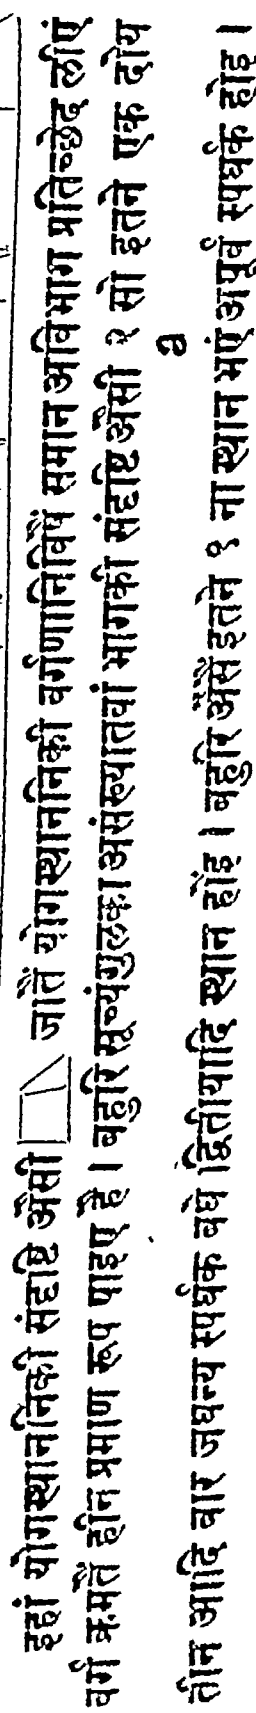 इहां योगस्थाननिकी संदृष्टि अैसी जातैं योगस्थाननिकी वर्गणानिविषैं समान अविभाग प्रतिच्छेद लीएं
वर्ग क्रमतैं हीन प्रमाण रूप पाइए है। बहुरि सूच्यंगुलका असंख्यातवां भागकी संदृष्टि अैसी २ सो इतने एक दोय
a
तीन आदि वार जघन्य स्पर्धक बधैं द्वितीयादि स्थान होंइ। बहुरि अैसैं इतने १ ना स्थान भएं अपूर्व स्पर्धक होइ।